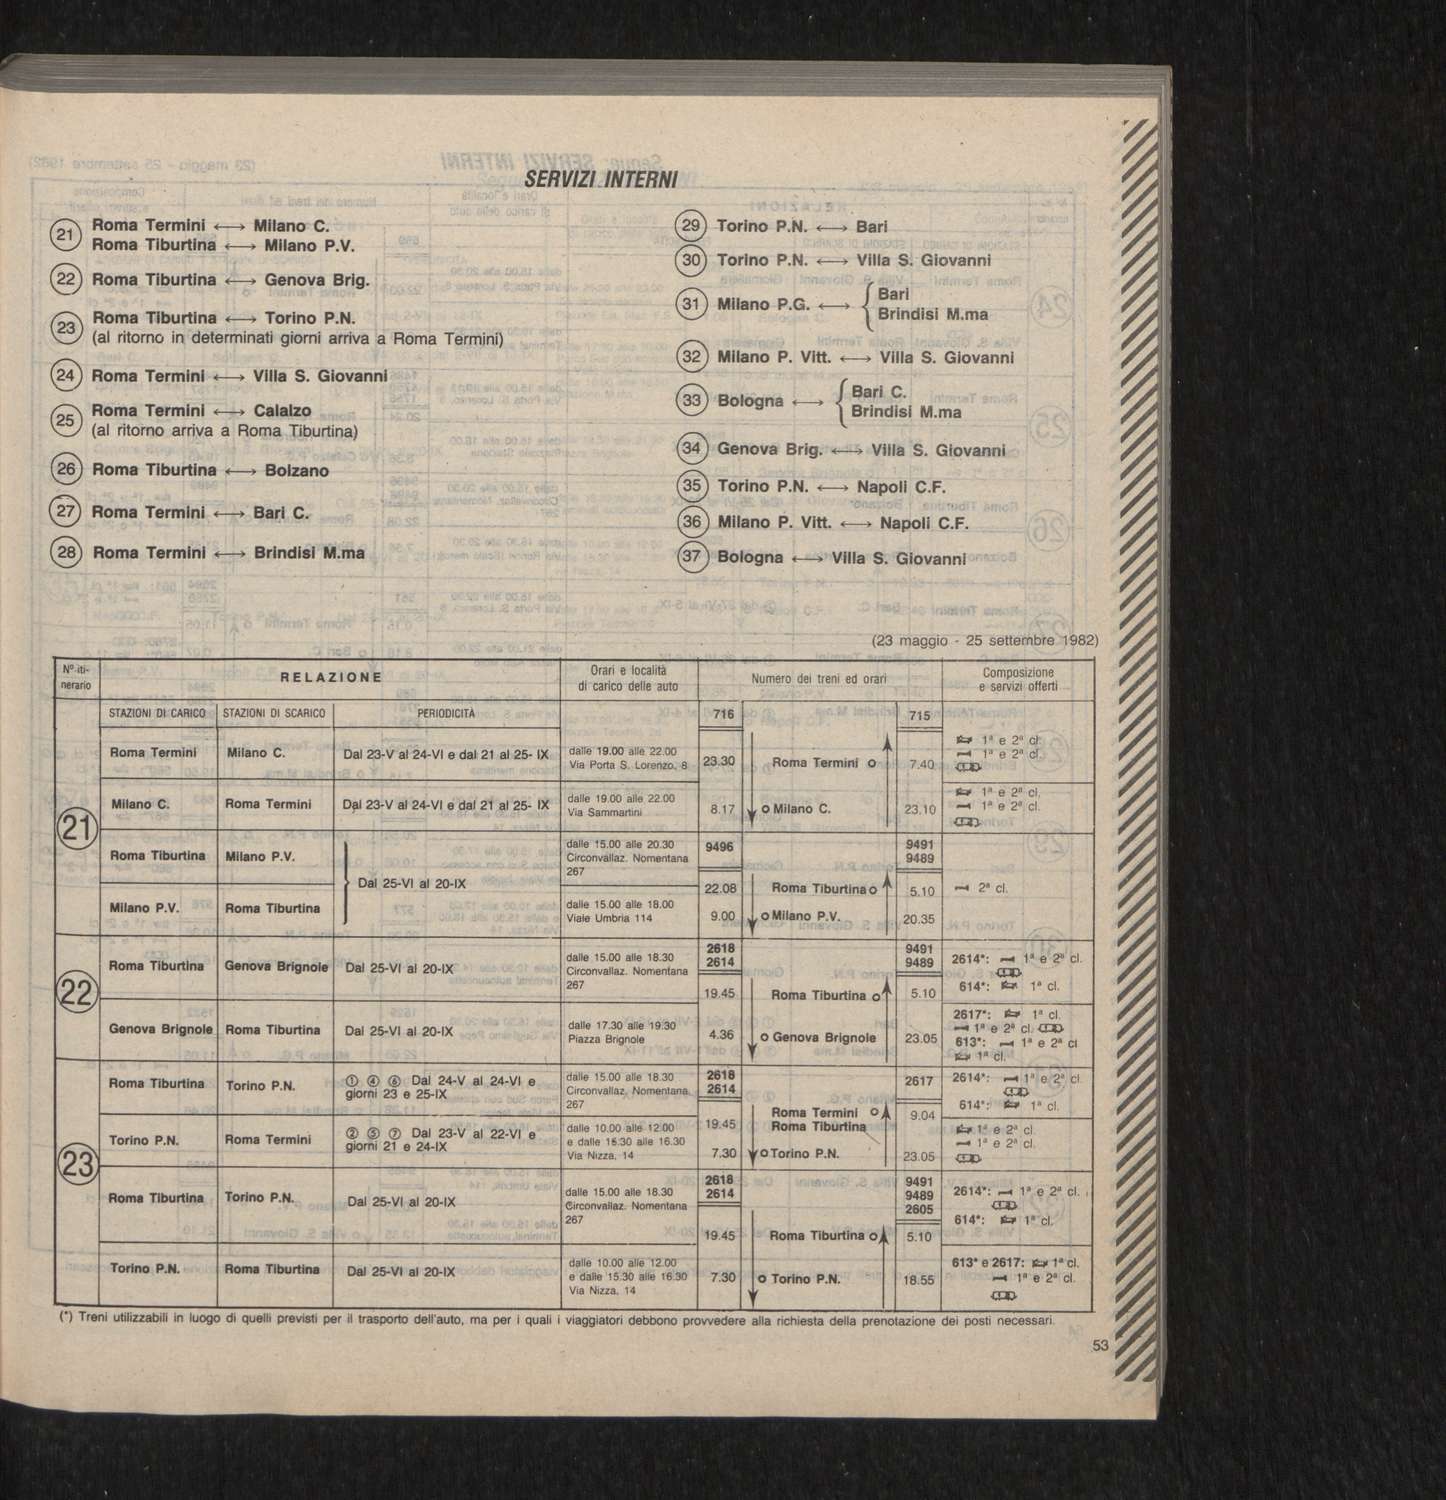 SERVIZI INTERNI
21 Roma Termini ⟷ Milano C.
Roma Tiburtina ⟷ Milano P.V.
22 Roma Tiburtina ⟷ Genova Brig.
23 Roma Tiburtina ⟷ Torino P.N.
(al ritorno in determinati giorni arriva a Roma Termini)
24 Roma Termini ⟷ Villa S. Giovanni
25 Roma Termini ⟷ Calalzo
(al ritorno arriva a Roma Tiburtina)
26 Roma Tiburtina ⟷ Bolzano
27 Roma Termini ⟷ Bari C.
28 Roma Termini ⟷ Brindisi M.ma
29 Torino P.N. ⟷ Bari
30 Torino P.N. ⟷ Villa S. Giovanni
31 Milano P.G. ⟷ { Bari
Brindisi M.ma
32 Milano P. Vitt. ⟷ Villa S. Giovanni
33 Bologna ⟷ { Bari C.
Brindisi M.ma
34 Genova Brig. ⟷ Villa S. Giovanni
35 Torino P.N. ⟷ Napoli C.F.
36 Milano P. Vitt. ⟷ Napoli C.F.
37 Bologna ⟷ Villa S. Giovanni
(23 maggio - 25 settembre 1982)
N° iti-
nerario
RELAZIONE
Orari e località
di carico delle auto
Numero dei treni ed orari
Composizione
e servizi offerti
STAZIONI DI CARICO STAZIONI DI SCARICO PERIODICITÀ
716 715
21
Roma Termini Milano C. Dal 23-V al 24-VI e dal 21 al 25- IX
dalle 19.00 alle 22.00
Via Porta S. Lorenzo, 8
23.30 Roma Termini 7.40
1ª e 2ª cl.
1ª e 2ª cl.
Milano C. Roma Termini Dal 23-V al 24-VI e dal 21 al 25- IX
dalle 19.00 alle 22.00
Via Sammartini
8.17 Milano C. 23.10
1ª e 2ª cl.
1ª e 2ª cl.
Roma Tiburtina Milano P.V.
Dal 25-VI al 20-IX
dalle 15.00 alle 20.30
Circonvallaz. Nomentana
267
9496 9491
9489
22.08 Roma Tiburtina 5.10
2ª cl.
Milano P.V. Roma Tiburtina
dalle 15.00 alle 18.00
Viale Umbria 114
9.00 Milano P.V. 20.35
22
Roma Tiburtina Genova Brignole Dal 25-VI al 20-IX
dalle 15.00 alle 18.30
Circonvallaz. Nomentana
267
2618
2614
9491
9489
19.45 Roma Tiburtina 5.10
2614*: 1ª e 2ª cl.
614*: 1ª cl.
Genova Brignole Roma Tiburtina Dal 25-VI al 20-IX
dalle 17.30 alle 19.30
Piazza Brignole
4.36 Genova Brignole 23.05
2617*: 1ª cl.
1ª e 2ª cl.
613*: 1ª e 2ª cl
1ª cl.
23
Roma Tiburtina Torino P.N.
① ④ ⑥ Dal 24-V al 24-VI e
giorni 23 e 25-IX
dalle 15.00 alle 18.30
Circonvallaz. Nomentana
267
2618
2614
2617
19.45 Roma Termini
Roma Tiburtina
9.04
2614*: 1ª e 2ª cl.
614*: 1ª cl.
Torino P.N. Roma Termini
② ⑤ ⑦ Dal 23-V al 22-VI e
giorni 21 e 24-IX
dalle 10.00 alle 12.00
e dalle 15.30 alle 16.30
Via Nizza, 14
7.30 Torino P.N. 23.05
1ª e 2ª cl.
1ª e 2ª cl.
Roma Tiburtina Torino P.N. Dal 25-VI al 20-IX
dalle 15.00 alle 18.30
Circonvallaz. Nomentana
267
2618
2614
9491
9489
2605
19.45 Roma Tiburtina 5.10
2614*: 1ª e 2ª cl.
614*: 1ª cl.
Torino P.N. Roma Tiburtina Dal 25-VI al 20-IX
dalle 10.00 alle 12.00
e dalle 15.30 alle 16.30
Via Nizza, 14
7.30 Torino P.N. 18.55
613* e 2617: 1ª cl.
1ª e 2ª cl.
(*) Treni utilizzabili in luogo di quelli previsti per il trasporto dell'auto, ma per i quali i viaggiatori debbono provvedere alla richiesta della prenotazione dei posti necessari.
53